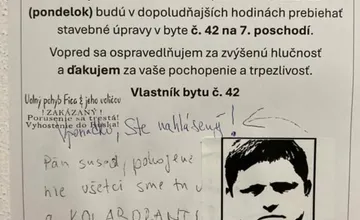 (pondelok) budú v dopoludňajších hodinách prebiehať
stavebné úpravy v byte č. 42 na 7. poschodí.
Vopred sa ospravedlňujem za zvýšenú hlučnosť
a ďakujem za vaše pochopenie a trpezlivosť.
Vlastník bytu č. 42
Voľný pohyb Fica a jeho voličov
! ZAKÁZANÝ !
Porusenie sa trestá!
Vyhostenie do Ruska!
Ste nahlásený!
Pán sused, pokojene
nie všetci sme tu